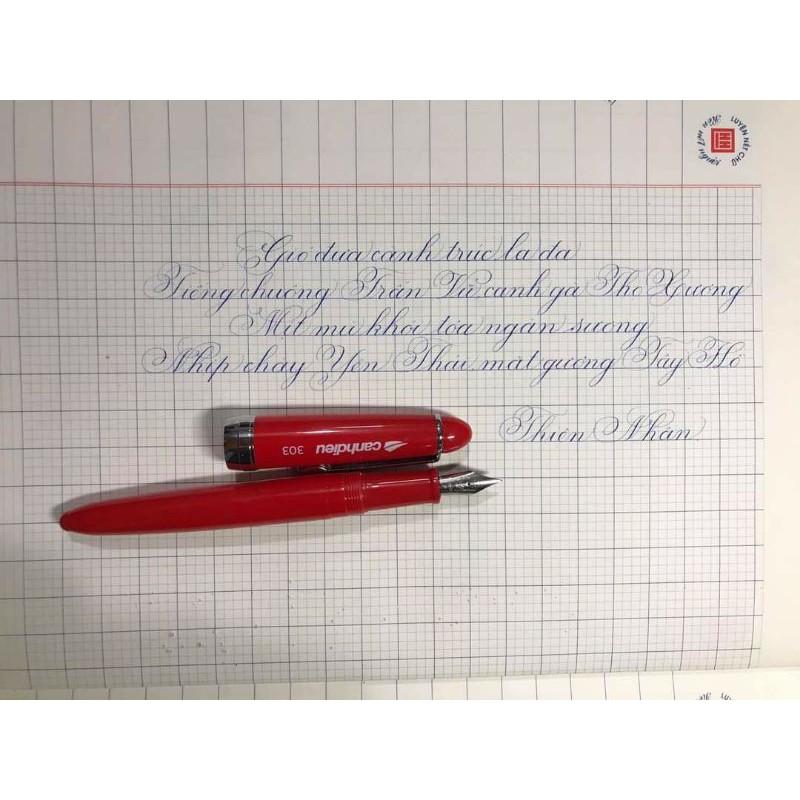 LUYỆN NÉT CHỮ
Gió đưa cành trúc la đà
Tiếng chuông Trấn Vũ canh gà Thọ Xương
Mịt mù khói tỏa ngàn sương
Nhịp chày Yên Thái mặt gương Tây Hồ
Thiện Nhân
canhdieu
303